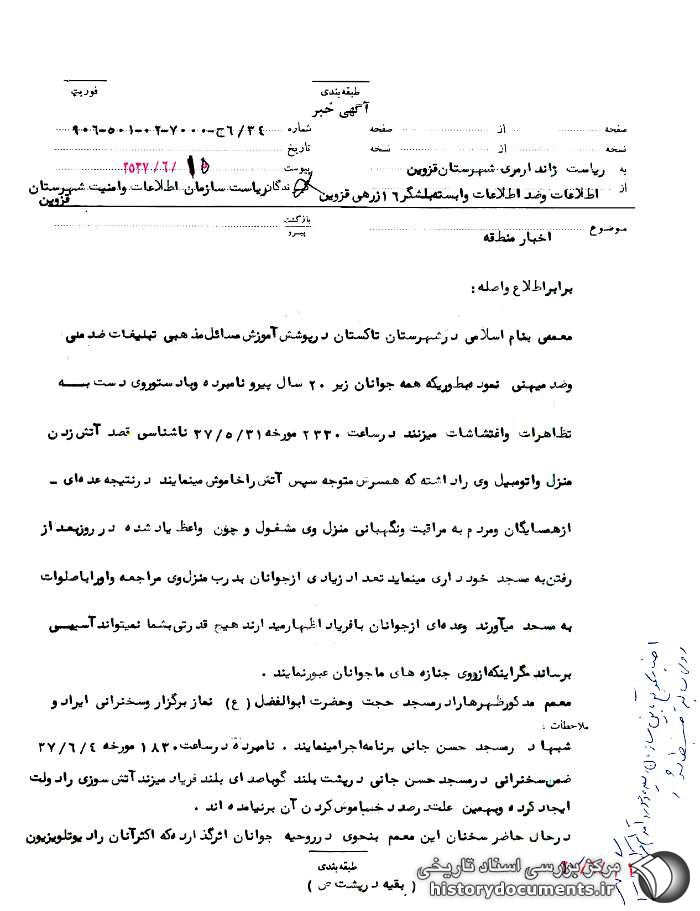 طبقه‌بندی
فوریت
آگهی خبر
صفحه از صفحه شماره ۹۰۶-۵۰۱-۰۲-۷۰۰۰-ج۶/۳۴
نسخه از نسخه تاریخ
به ریاست ژاندارمری شهرستان قزوین پیوست ۱۵ /۶/ ۲۵۳۷
از اطلاعات وضد اطلاعات وابسته بلشگر ۱۶ زرهی قزوین گیرندگان ریاست سازمان اطلاعات وامنیت شهرستان
قزوین
بازگشت
پیرو
موضوع اخبار منطقه
برابر اطلاع واصله :
معممی بنام اسلامی در شهرستان تاکستان در پوشش آموزش مسائل مذهبی تبلیغات ضد ملی
وضد میهنی نموده بطوریکه همه جوانان زیر ۲۰ سال پیرو نامبرده وبا دستور وی دست بــه
تظاهرات واغتشاشات میزنند در ساعت ۲۳۳۰ مورخه ۳۷/۵/۳۱ ناشناسی قصد آتش زدن
منزل واتومبیل وی را داشته که همسرش متوجه سپس آتش را خاموش مینمایند در نتیجه عده‌ای -
از همسایگان ومردم به مراقبت ونگهبانی منزل وی مشغول و چون واعظ یاد شده در روز بعد از
رفتن به مسجد خود داری مینماید تعداد زیادی از جوانان بدرب منزل وی مراجعه واورا باصلوات
به مسجد میآورند وعده‌ای از جوانان با فریاد اظهار میدارند هیچ قدرتی بشما نمیتواند آسیبی
برساند مگر اینکه از روی جنازه های ما جوانان عبور نمایند .
معمم مذکور ظهرها را در مسجد حجت وحضرت ابوالفضل ( ع ) نماز برگزار وسخنرانی ایراد و
ملاحظات :
شبها در مسجد حسن جانی برنامه اجرا مینمایند . نامبرده در ساعت ۱۸۳۰ مورخه ۳۷/۶/۴
ضمن سخنرانی در مسجد حسن جانی در پشت بلند گو باصدای بلند فریاد میزند آتش سوزی را دولت
ایجاد کرده وبهمین علت در صدد خاموش کردن آن برنیامده اند .
در حال حاضر سخنان این معمم بنحوی در روحیه جوانان اثر گذارده که اکثر آنان رادیو تلویزیون
طبقه‌بندی
( بقیه در پشت ص )
مرکز بررسی اسناد تاریخی
historydocuments.ir